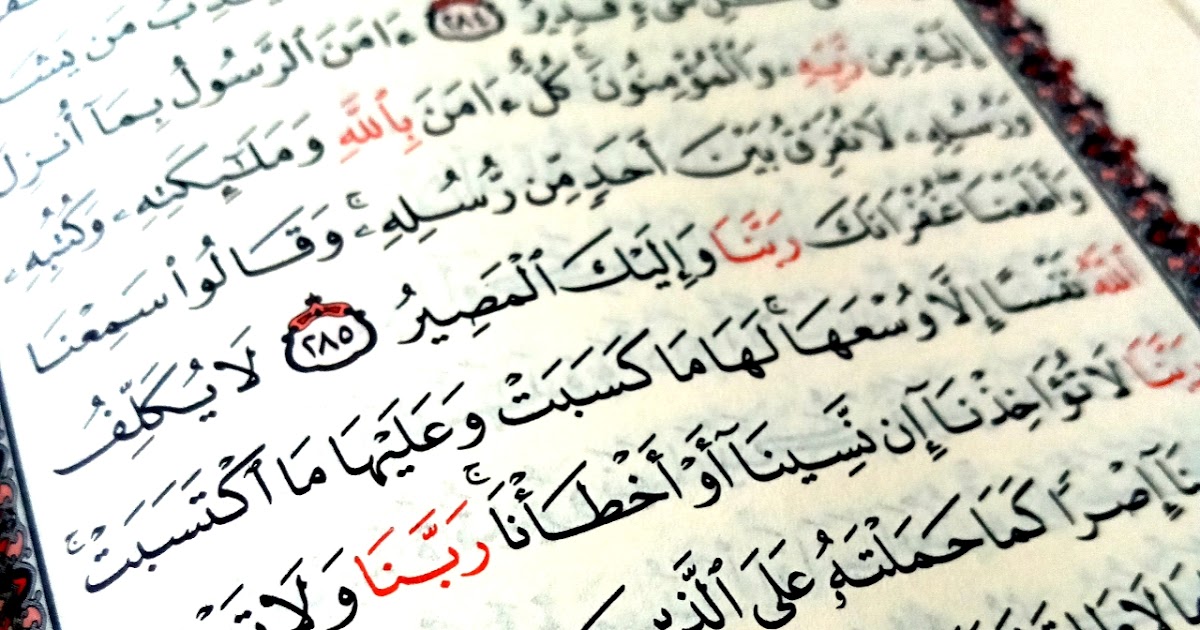 مَن يَشَ
شَىْءٍ قَدِيرٌ ٢٨٤ ءَامَنَ ٱلرَّسُولُ بِمَآ أُنزِلَ
إِلَيْهِ مِن رَّبِّهِۦ وَٱلْمُؤْمِنُونَ ۚ كُلٌّ ءَامَنَ بِٱللَّهِ وَمَلَـٰٓئِكَتِهِۦ وَكُتُبِهِۦ
وَرُسُلِهِۦ لَا نُفَرِّقُ بَيْنَ أَحَدٍ مِّن رُّسُلِهِۦ ۚ وَقَالُوا۟ سَمِعْنَا
وَأَطَعْنَا ۖ غُفْرَانَكَ رَبَّنَا وَإِلَيْكَ ٱلْمَصِيرُ ٢٨٥ لَا يُكَلِّفُ
ٱللَّهُ نَفْسًا إِلَّا وُسْعَهَا ۚ لَهَا مَا كَسَبَتْ وَعَلَيْهَا مَا ٱكْتَسَبَتْ ۗ
رَبَّنَا لَا تُؤَاخِذْنَآ إِن نَّسِينَآ أَوْ أَخْطَأْنَا ۚ رَبَّنَا وَلَا تَ
نَآ إِصْرًا كَمَا حَمَلْتَهُۥ عَلَى ٱلَّذِي